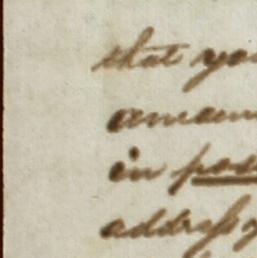 that you
amoun
in pos
address